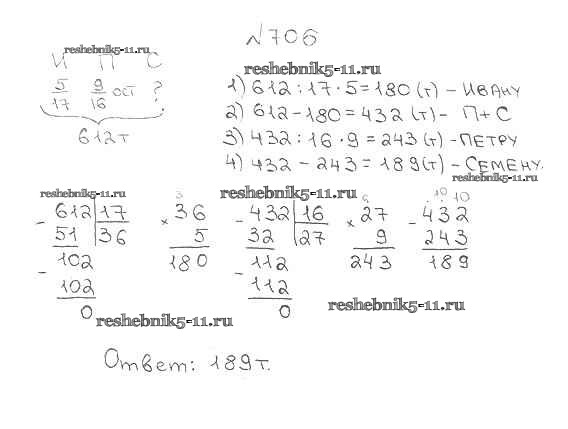 №706
reshebnik5-11.ru
И П С
5/17 9/16 ост ?
612т
reshebnik5-11.ru
1) 612 : 17 · 5 = 180 (т) – ИВАНУ
2) 612 – 180 = 432 (т) – П+С
3) 432 : 16 · 9 = 243 (т) – ПЕТРУ
4) 432 – 243 = 189 (т) – СЕМЕНУ.
reshebnik5-11.ru
reshebnik5-11.ru
reshebnik5-11.ru
3 6 . 10 10
- 612 | 17 × 36 - 432 | 16 × 27 - 432
51 | 36 5 32 | 27 9 243
- 102 180 - 112 243 189
102 112
0 0
reshebnik5-11.ru
reshebnik5-11.ru
Ответ: 189т.